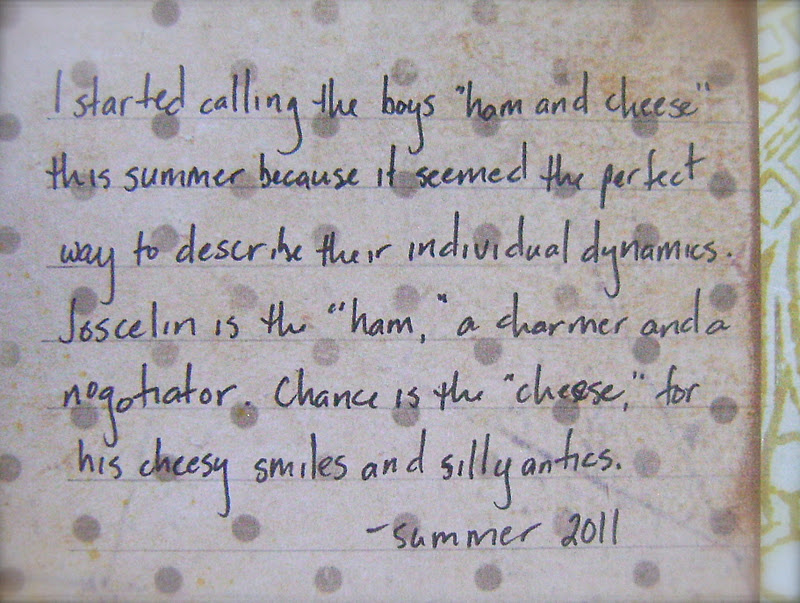 I started calling the boys "ham and cheese"
this summer because it seemed the perfect
way to describe their individual dynamics.
Joscelin is the "ham," a charmer and a
negotiator. Chance is the "cheese," for
his cheesy smiles and silly antics.
-summer 2011